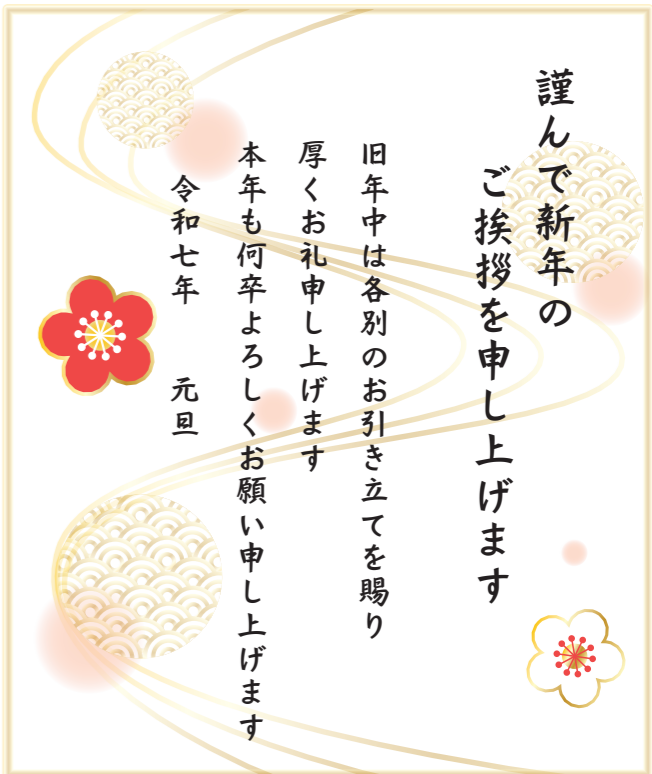 謹んで新年の
ご挨拶を申し上げます
旧年中は各別のお引き立てを賜り
厚くお礼申し上げます
本年も何卒よろしくお願い申し上げます
令和七年　元旦